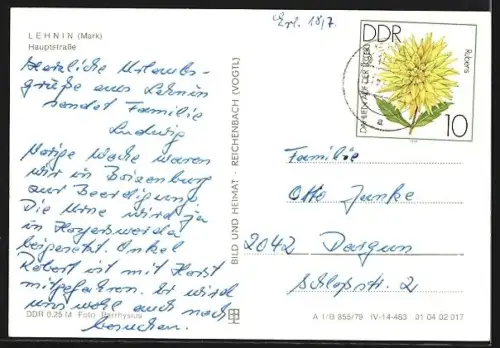 LEHNIN (Mark)
Hauptstraße
Herzliche Urlaubs-
grüße aus Lehnin
sendet Familie
Ludwig
Vorige Woche waren
wir in Boizenburg
zur Beerdigung.
Die Urne wird ja
in Hoyerswerda
beigesetzt. Onkel
Robert ist mit Horst
mitgefahren. Er wird
uns wohl auch noch
besuchen.
DDR 0,25 M Foto: Darr, Rhysius
BILD UND HEIMAT · REICHENBACH (VOGTL)
Erl. 18/7.
DDR
Rubens
10
a
Familie
Otto Junke
2042 Dargun
Schloßstr. 2
A 1/B 855/79 IV-14-483 01 04 02 017